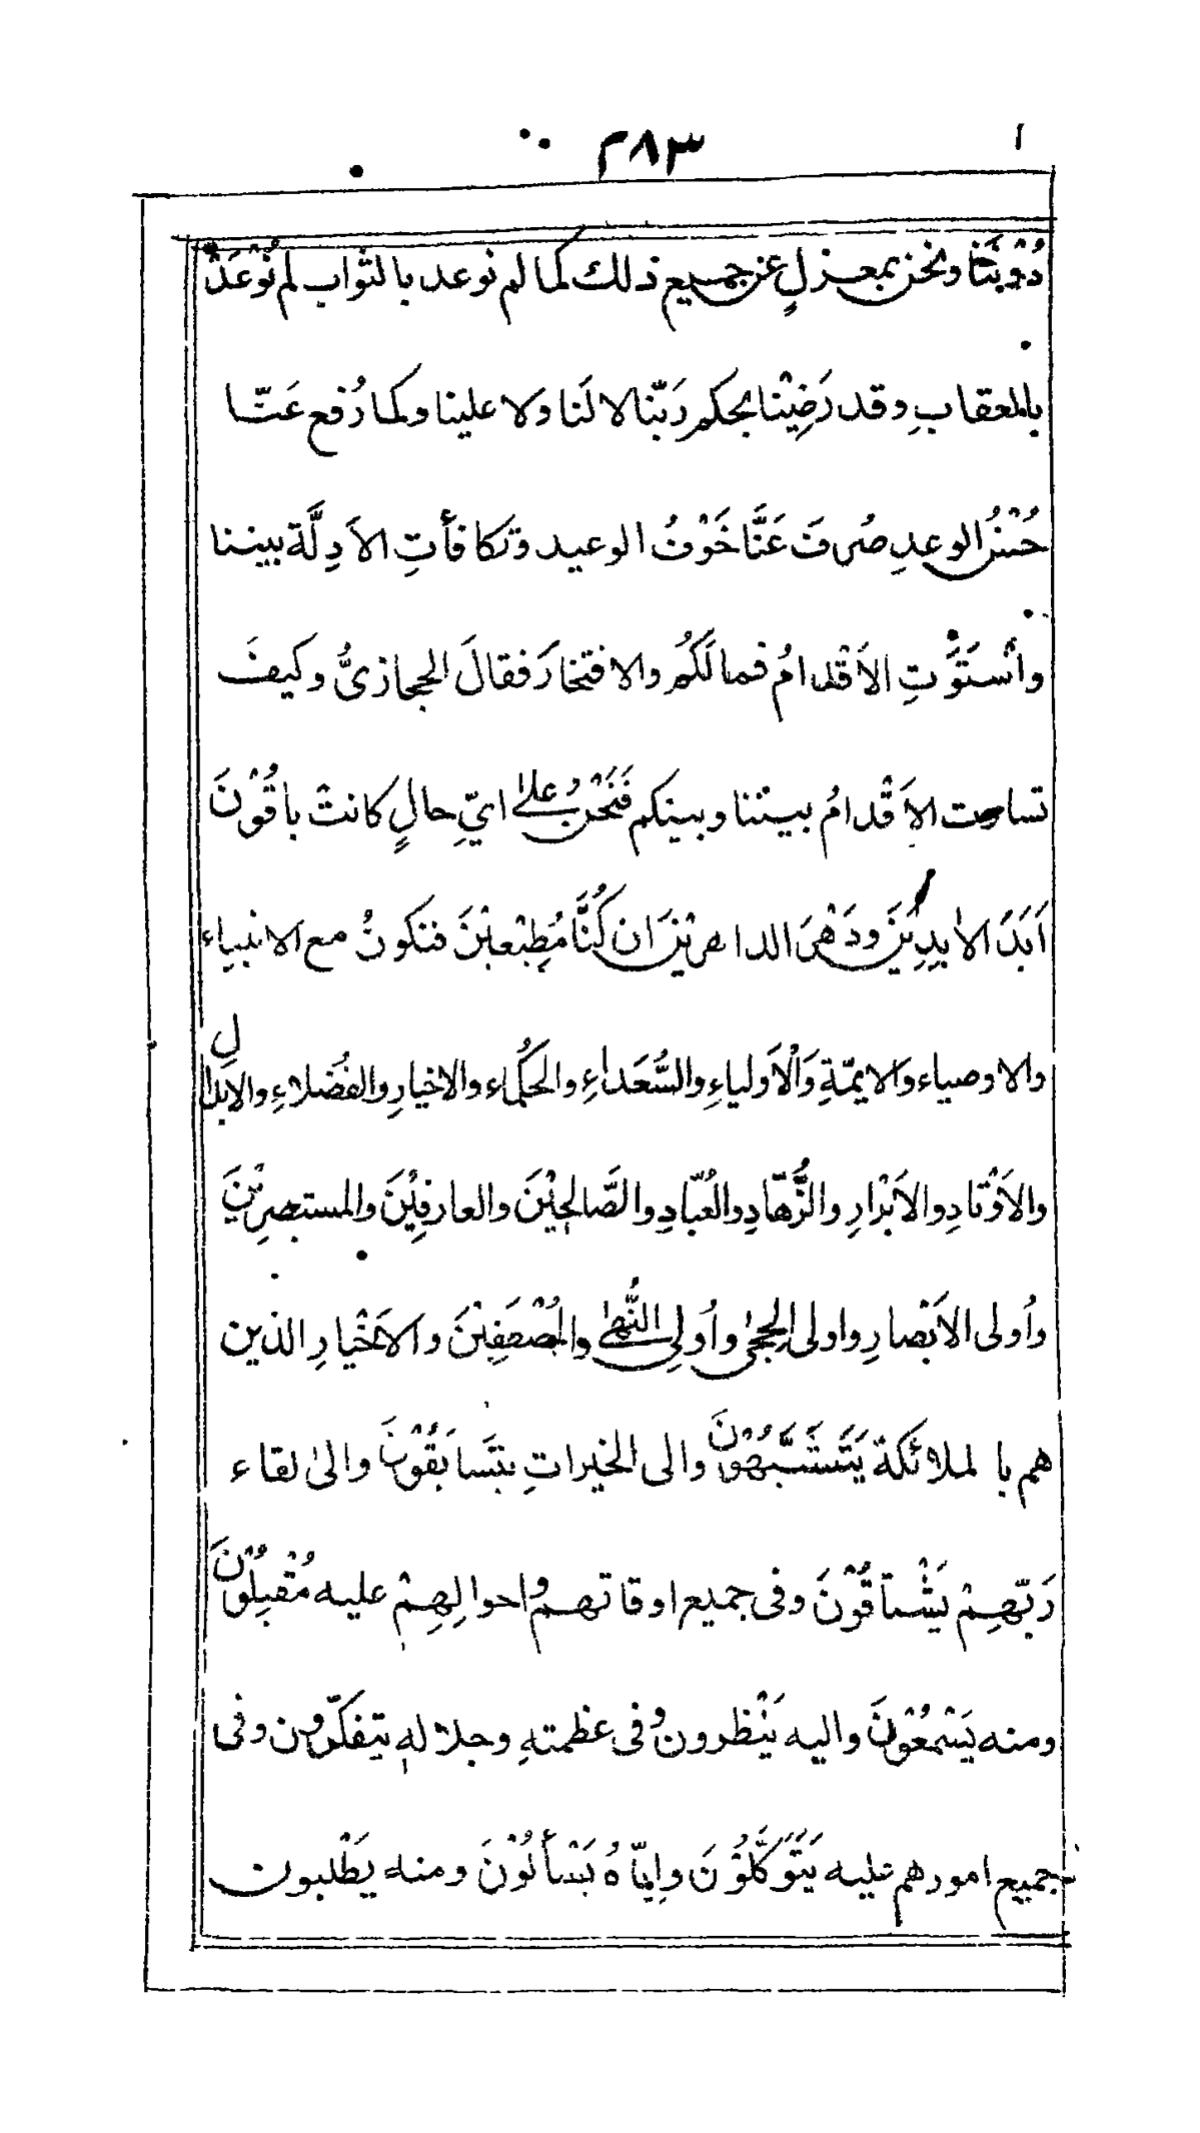 ٢٨٣
دُوْنَنَا ونحن بمعزلٍ عن جميع ذلك كما لم نوعد بالثواب لم نُوْعَدْ
بالعقابِ وقد رَضِيْنا بحكم رَبّنا لا لَنا ولا علينا وكما رُفع عَنّا
حُسْنُ الوعدِ صُرِفَ عَنَّا خَوْفُ الوعيد وتكافأتِ الاَدِلَّة بيننا
وأسْتَوَتِ الاَقْدامُ فما لَكُم والافتخارَ فقالَ الحجازىُّ وكيفَ
تساوت الاَقْدامُ بيننا وبينكم فَنَحْنُ على ايِّ حالٍ كانتْ باقُوْنَ
اَبَدَ الاٰبِدِيْنَ ودَهْرَ الداهرِيْنَ ان كُنَّا مُطِيْعِيْنَ فنكونُ مع الانبياء
والاوصياء والايمّةِ وَالْاَولياءِ والسُّعَداءِ والحُكماء والاخيارِ والفُضلاءِ والابدالِ
والاَوْتادِ والاَبْرارِ والزُّهّادِ والعُبّادِ والصَّالِحِيْنَ والعارفِيْنَ والمستبصرِيْنَ
واُولى الاَبْصارِ واولى الحِجىٰ واُولِى النُّهىٰ والمُصْطَفِيْنَ والاَخْيارِ الذين
هم بالملائكة يَتَشَبَّهُوْنَ والى الخيراتِ يتَسابَقُوْنَ والىٰ لقاء
رَبّهِمْ يَشْتاقُوْنَ وفى جميع اوقاتهم واحوالِهِمْ عليه مُقْبِلُوْنَ
ومنه يَسْمَعُوْنَ واليه يَنْظرون وفى عظمتهِ وجلالهِ يتفكّرون وفى
جميع امورهم عليه يَتَوَكَّلُوْنَ واِيّاهُ يَسْأَلُوْنَ ومنه يَطْلبون